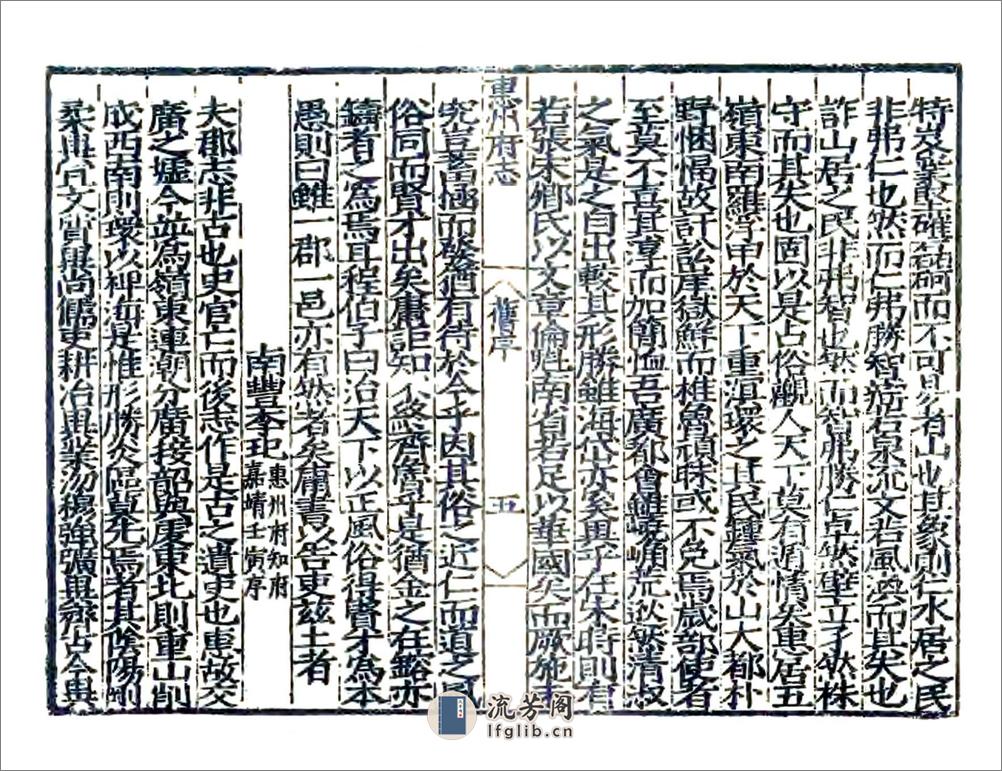 特岌嶪礐確磊砢而不可易者山也其象則仁水居之民
非弗仁也然而仁弗勝智矣若泉流文若風渙而其失也
詐山居之民非弗智也然而智弗勝仁卓然壁立孑然株
守而其失也固以是占俗觀人天下莫有遁情矣惠居五
嶺東南羅浮甲於天下重溟環之其民鍾氣於山大都朴
野悃愊故訐訟崖獄鮮而椎魯頑昧或不免焉歲部使者
至莫不喜其淳而加簡恤吾廣都會雖嶢崅荒逖然清淑
之氣是之自出較其形勝雖海岱亦奚與乎在宋時則有
若張宋卿氏以文章倫魁南省若足以華國矣而厥施未
惠州府志
舊序
五
究豈蓄極而發猶有待於今乎因其俗之近仁而道之風
俗同而賢才出矣庸詎知不終齊魯乎是猶金之在鎔亦
鑄者之為焉耳程伯子曰治天下以正風俗得賢才為本
愚則曰雖一郡一邑亦有然者矣庸書以告吏茲土者
南豐李玘 惠州府知府 嘉靖壬寅序
夫郡志非古也史官亡而後志作是古之遺史也惠故交
廣之墟今竝為嶺東連潮分廣接韶與虔東北則重山削
成西南則環以裨海是惟形勝矣區莫先焉者其陰陽剛
柔與宜文質異尚儒吏耕冶異業沕穆強獷異辨古今與